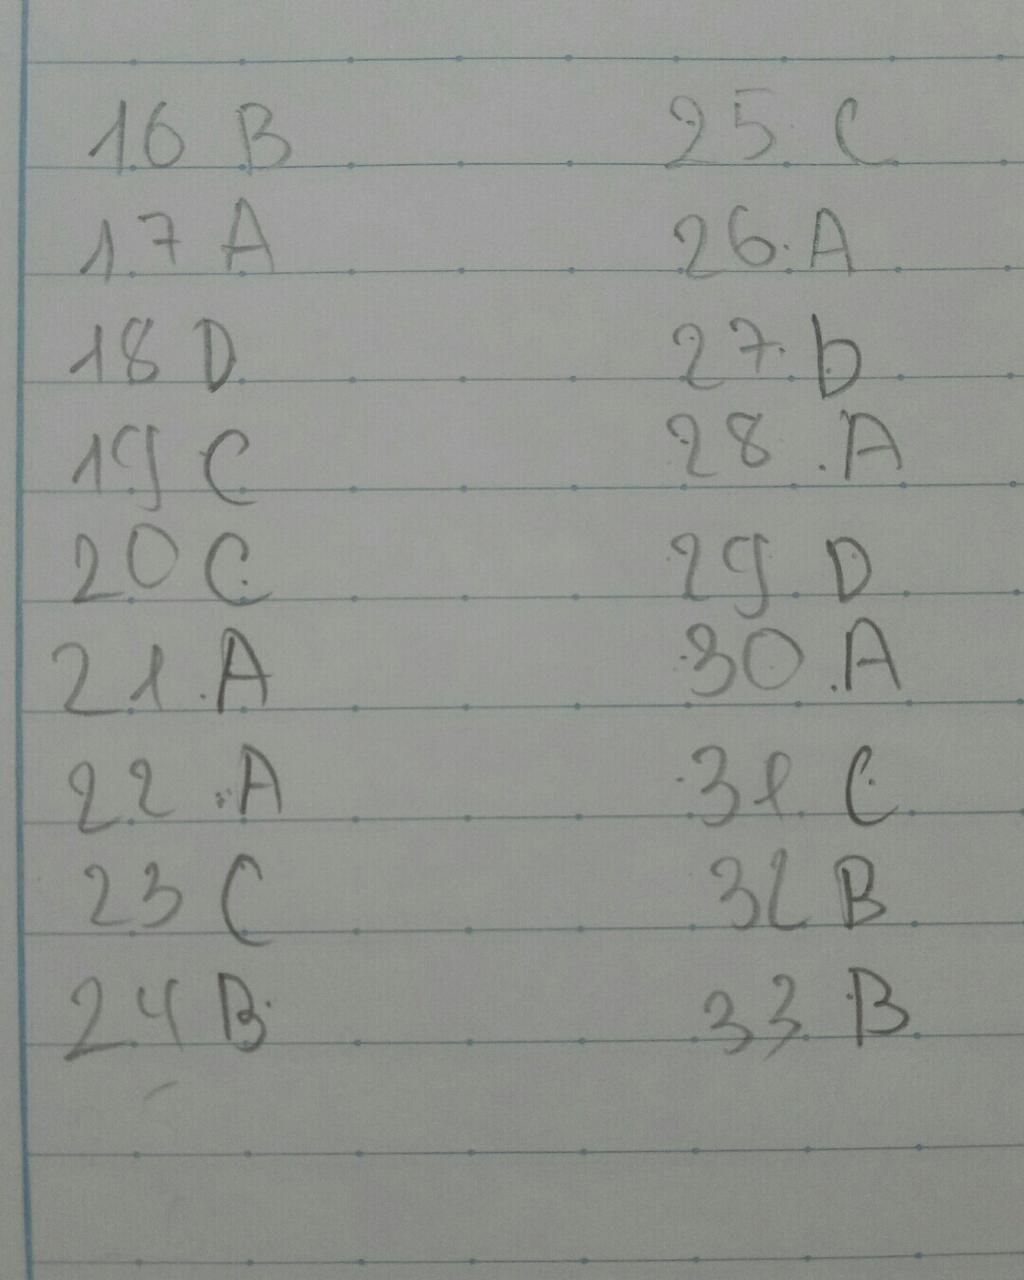 16 B
17 A
18 D
19 C
20 C
21.A
22.A
23 C
24 B
25 C
26.A
27.b
28.A
29 D
30.A
31 C
32 B
33 B